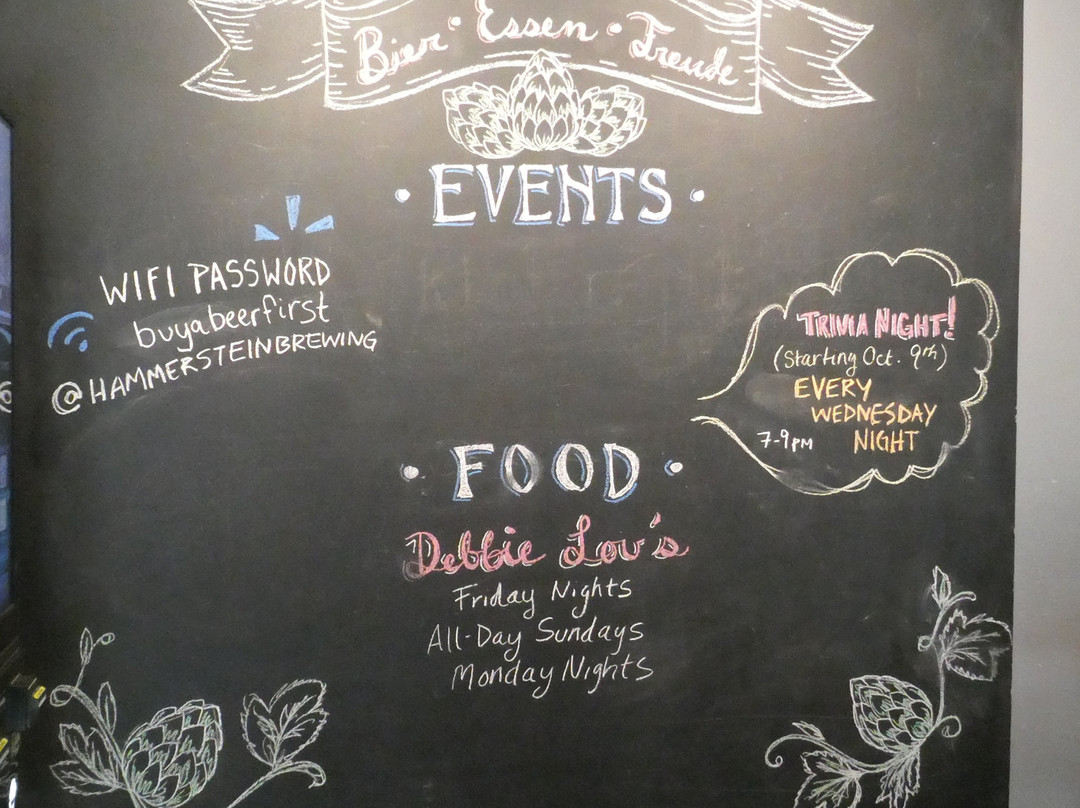 Bier · Essen · Freude
· EVENTS ·
WIFI PASSWORD
buyabeerfirst
@HAMMERSTEINBREWING
TRIVIA NIGHT!
(Starting Oct. 9th)
EVERY
WEDNESDAY
7-9PM NIGHT
· FOOD ·
Debbie Lou's
Friday Nights
All-Day Sundays
Monday Nights